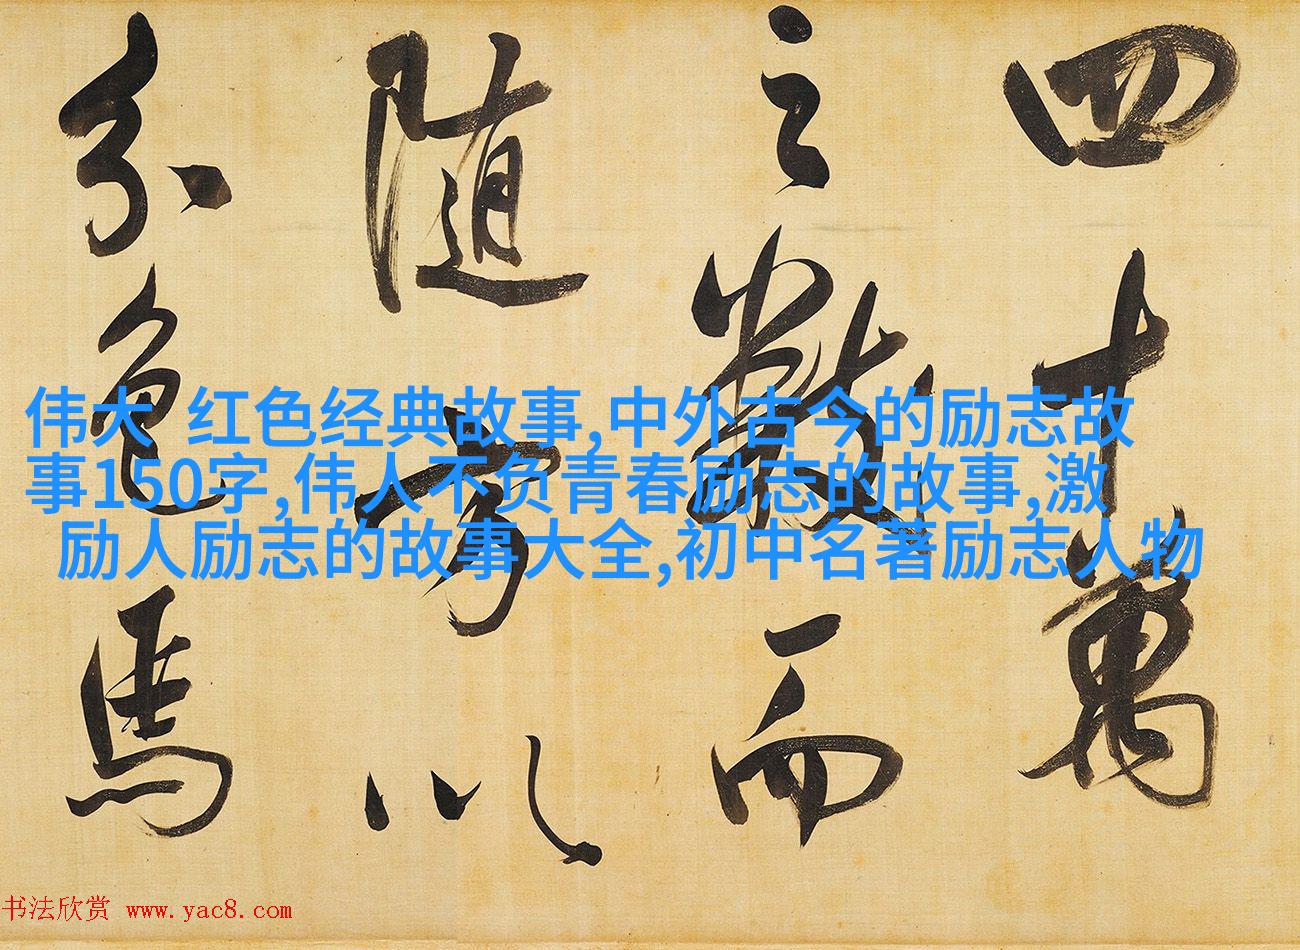 四十萬
之數而
隨方以
分色馬
伟大 红色经典故事,中外古今的励志故
事150字,伟人不负青春励志的故事,激
励人励志的故事大全,初中名著励志人物
书法欣赏 www.yac8.com